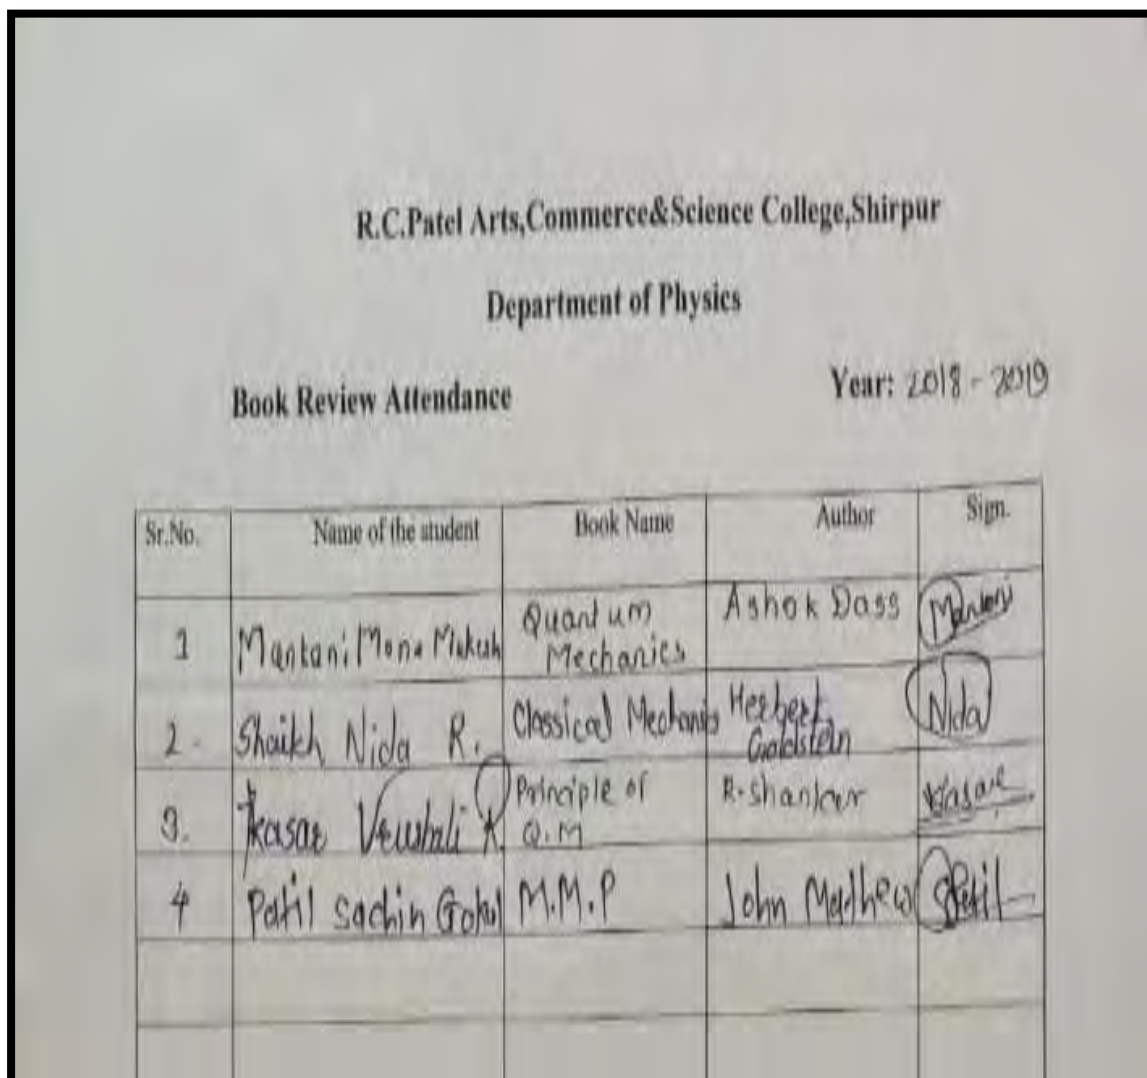 R.C.Patel Arts,Commerce&Science College,Shirpur
Department of Physics
Book Review Attendance Year: 2018 - 2019
Sr.No. Name of the student Book Name Author Sign.
1 Mankani Mona Quantum Mechanics Ashok Dass
2. Shaikh Nida R. Classical Mechanics Herbert Goldstein Nida
3. Kasar R Principle of Q.M R. Shankar Kasar
4 Patil Sachin Gokul M.M.P John Mathew SPatil